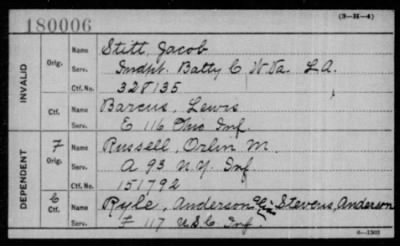 180006 (3-M-4)
INVALID
Orig. Name Stitt, Jacob
Serv. Indpt. Batty C W Va. L.A.
Ctf. No. 328135
Ctf. Name Barcus, Lewis
Serv. E 116 Ohio Inf.
DEPENDENT
7 Orig. Name Russell, Orlin M.
Serv. A 93 N.Y. Inf
Ctf. No. 151792
6 Ctf. Name Ryle, Anderson or Stevens, Anderson
Serv. F 117 U S C Inf.
6-1303